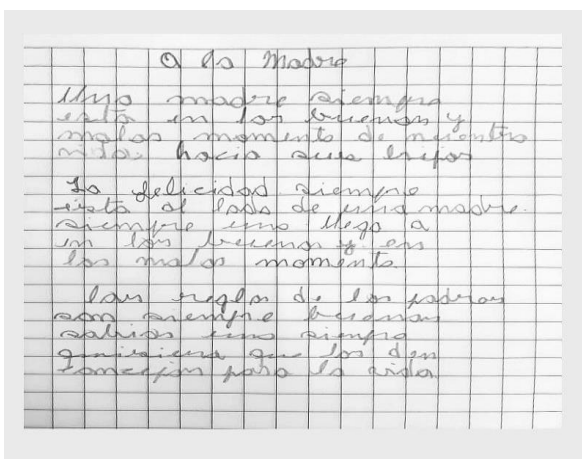 A la Madre
Una madre siempre
está en los buenos y
malos momento de nuestra
vida. hacia sus hijos
La felicidad siempre
está al lado de una madre.
siempre uno llega a
en los buenos y en
los malos momento.
las reglas de los padres
son siempre buenas
sabios uno siempre
quisiera que los den
consejos para la vida